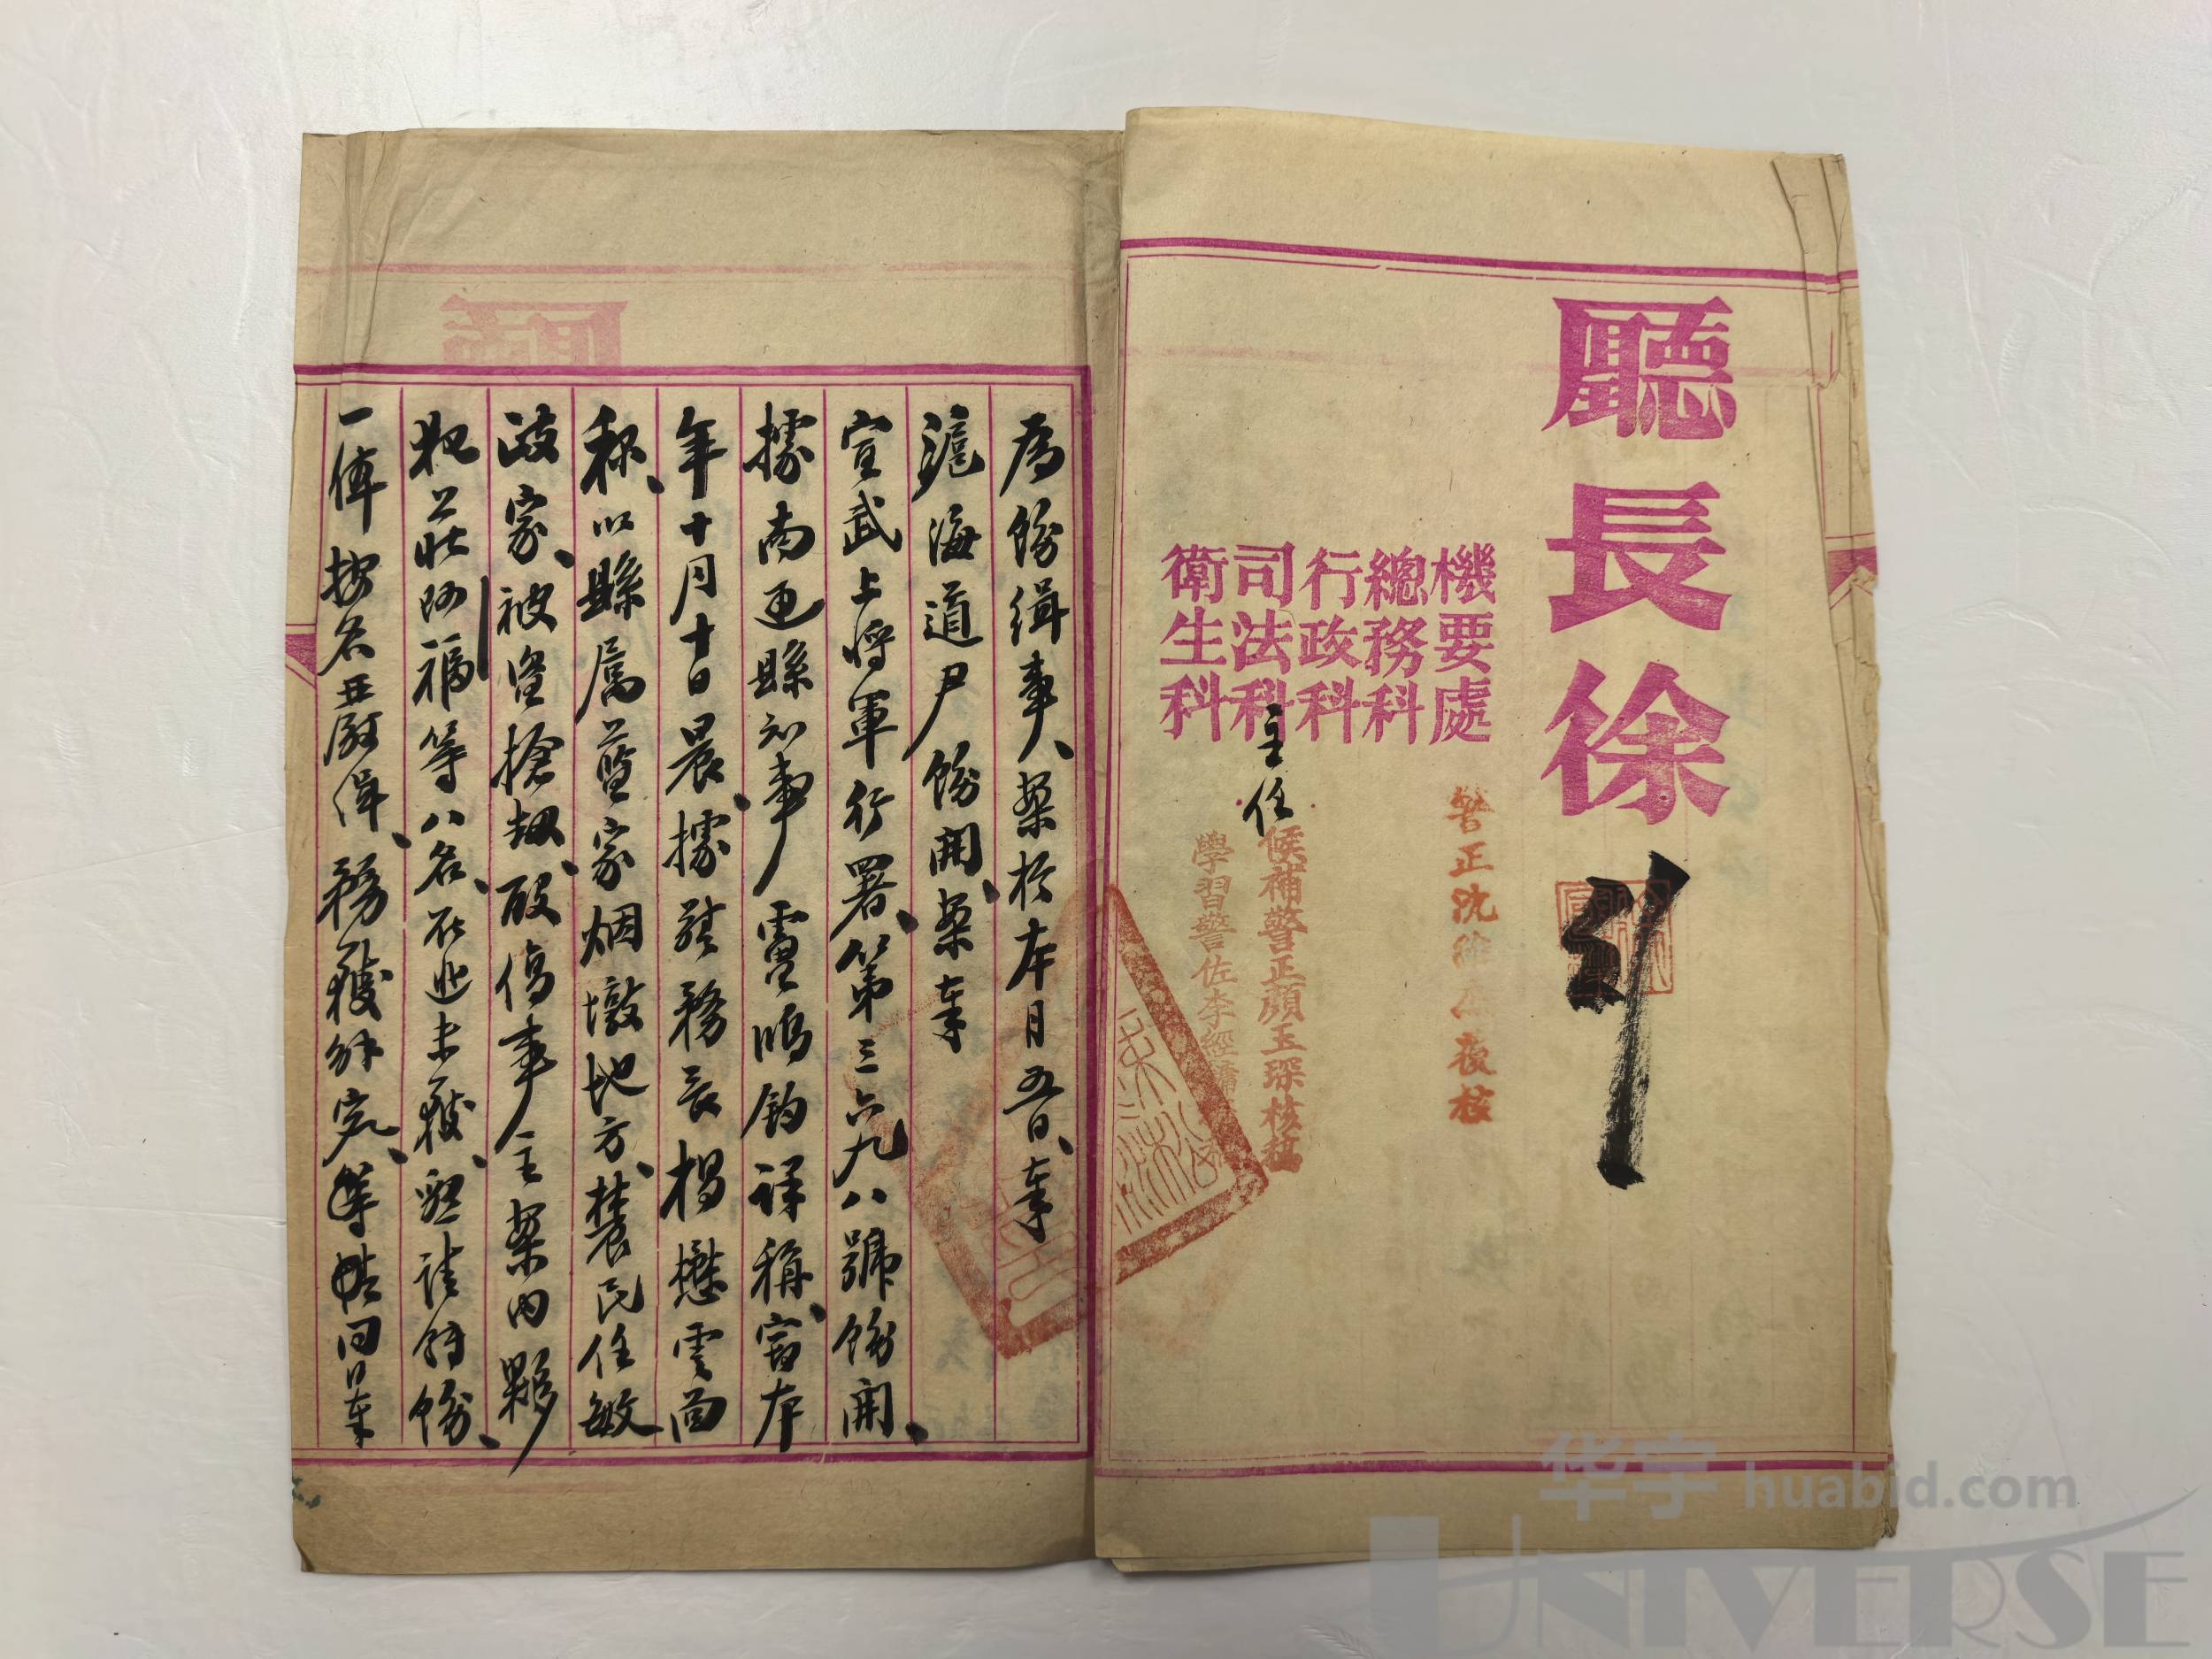 廳長徐
機要處
總務科
行政科
司法科
衛生科
主任
警正沈 復核
候補警正顏玉琛核稿
學習警佐李經
為飭緝事、案於本月五日、奉
滬海道尹飭開、案奉
宣武上將軍行署、第三六九八號飭開、
據南匯縣知事 鈞詳稱、竊本
年十月十日晨、據 務長楊懋雲面
稱、以縣屬藍家烟墩地方、農民任敏
政家、被盜搶劫、毆傷事主案內夥
犯 福等八名、在逃未獲、懇請飭
一體按名 緝、務獲解究、等情同日奉
华宇 huabid.com
UNIVERSE